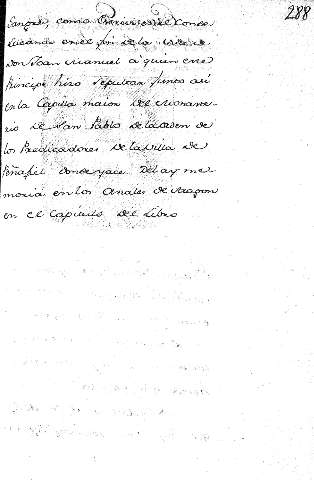 288
Sangre, como
Lucanor en el fin de la vida de
Don Juan Manuel a quien este
Principe hizo sepultar junto asi
en la Capilla maior del Monaste-
rio de San Pablo de la orden de
los Predicadores de la villa de
Peñafiel donde yace. Del ay me-
moria en los Anales de Aragon
en el Capitulo del Libro